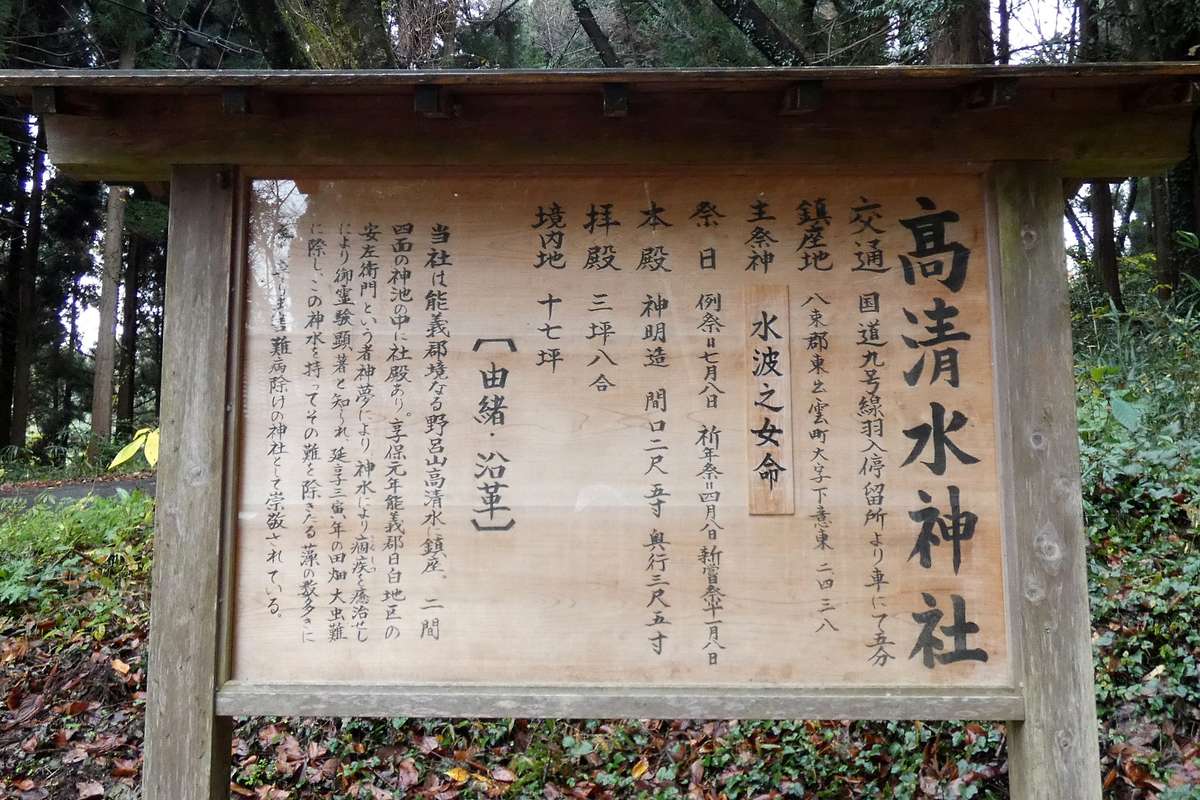 高清水神社
交通 国道九号線羽入停留所より車にて五分
鎮座地 八束郡東出雲町大字下意東 二四三八
主祭神 水波之女命
祭日 例祭日七月八日 祈年祭日四月八日 新嘗祭十一月八日
本殿 神明造 間口二尺五寸 奥行三尺五寸
拝殿 三坪八合
境内地 十七坪
【由緒・沿革】
当社は能義郡境なる野呂山高清水鎮座。二間
四面の神池の中に社殿あり。享保元年能義郡日白地区の
安左衛門という者神夢により、神水により痼疾を癒治せし
により御霊験顕著と知られ、延享三寅、年の田畑大虫難
に除し、この神水を持ってその難を除きたる 藻の数多きに
難病除けの神社として崇敬されている。